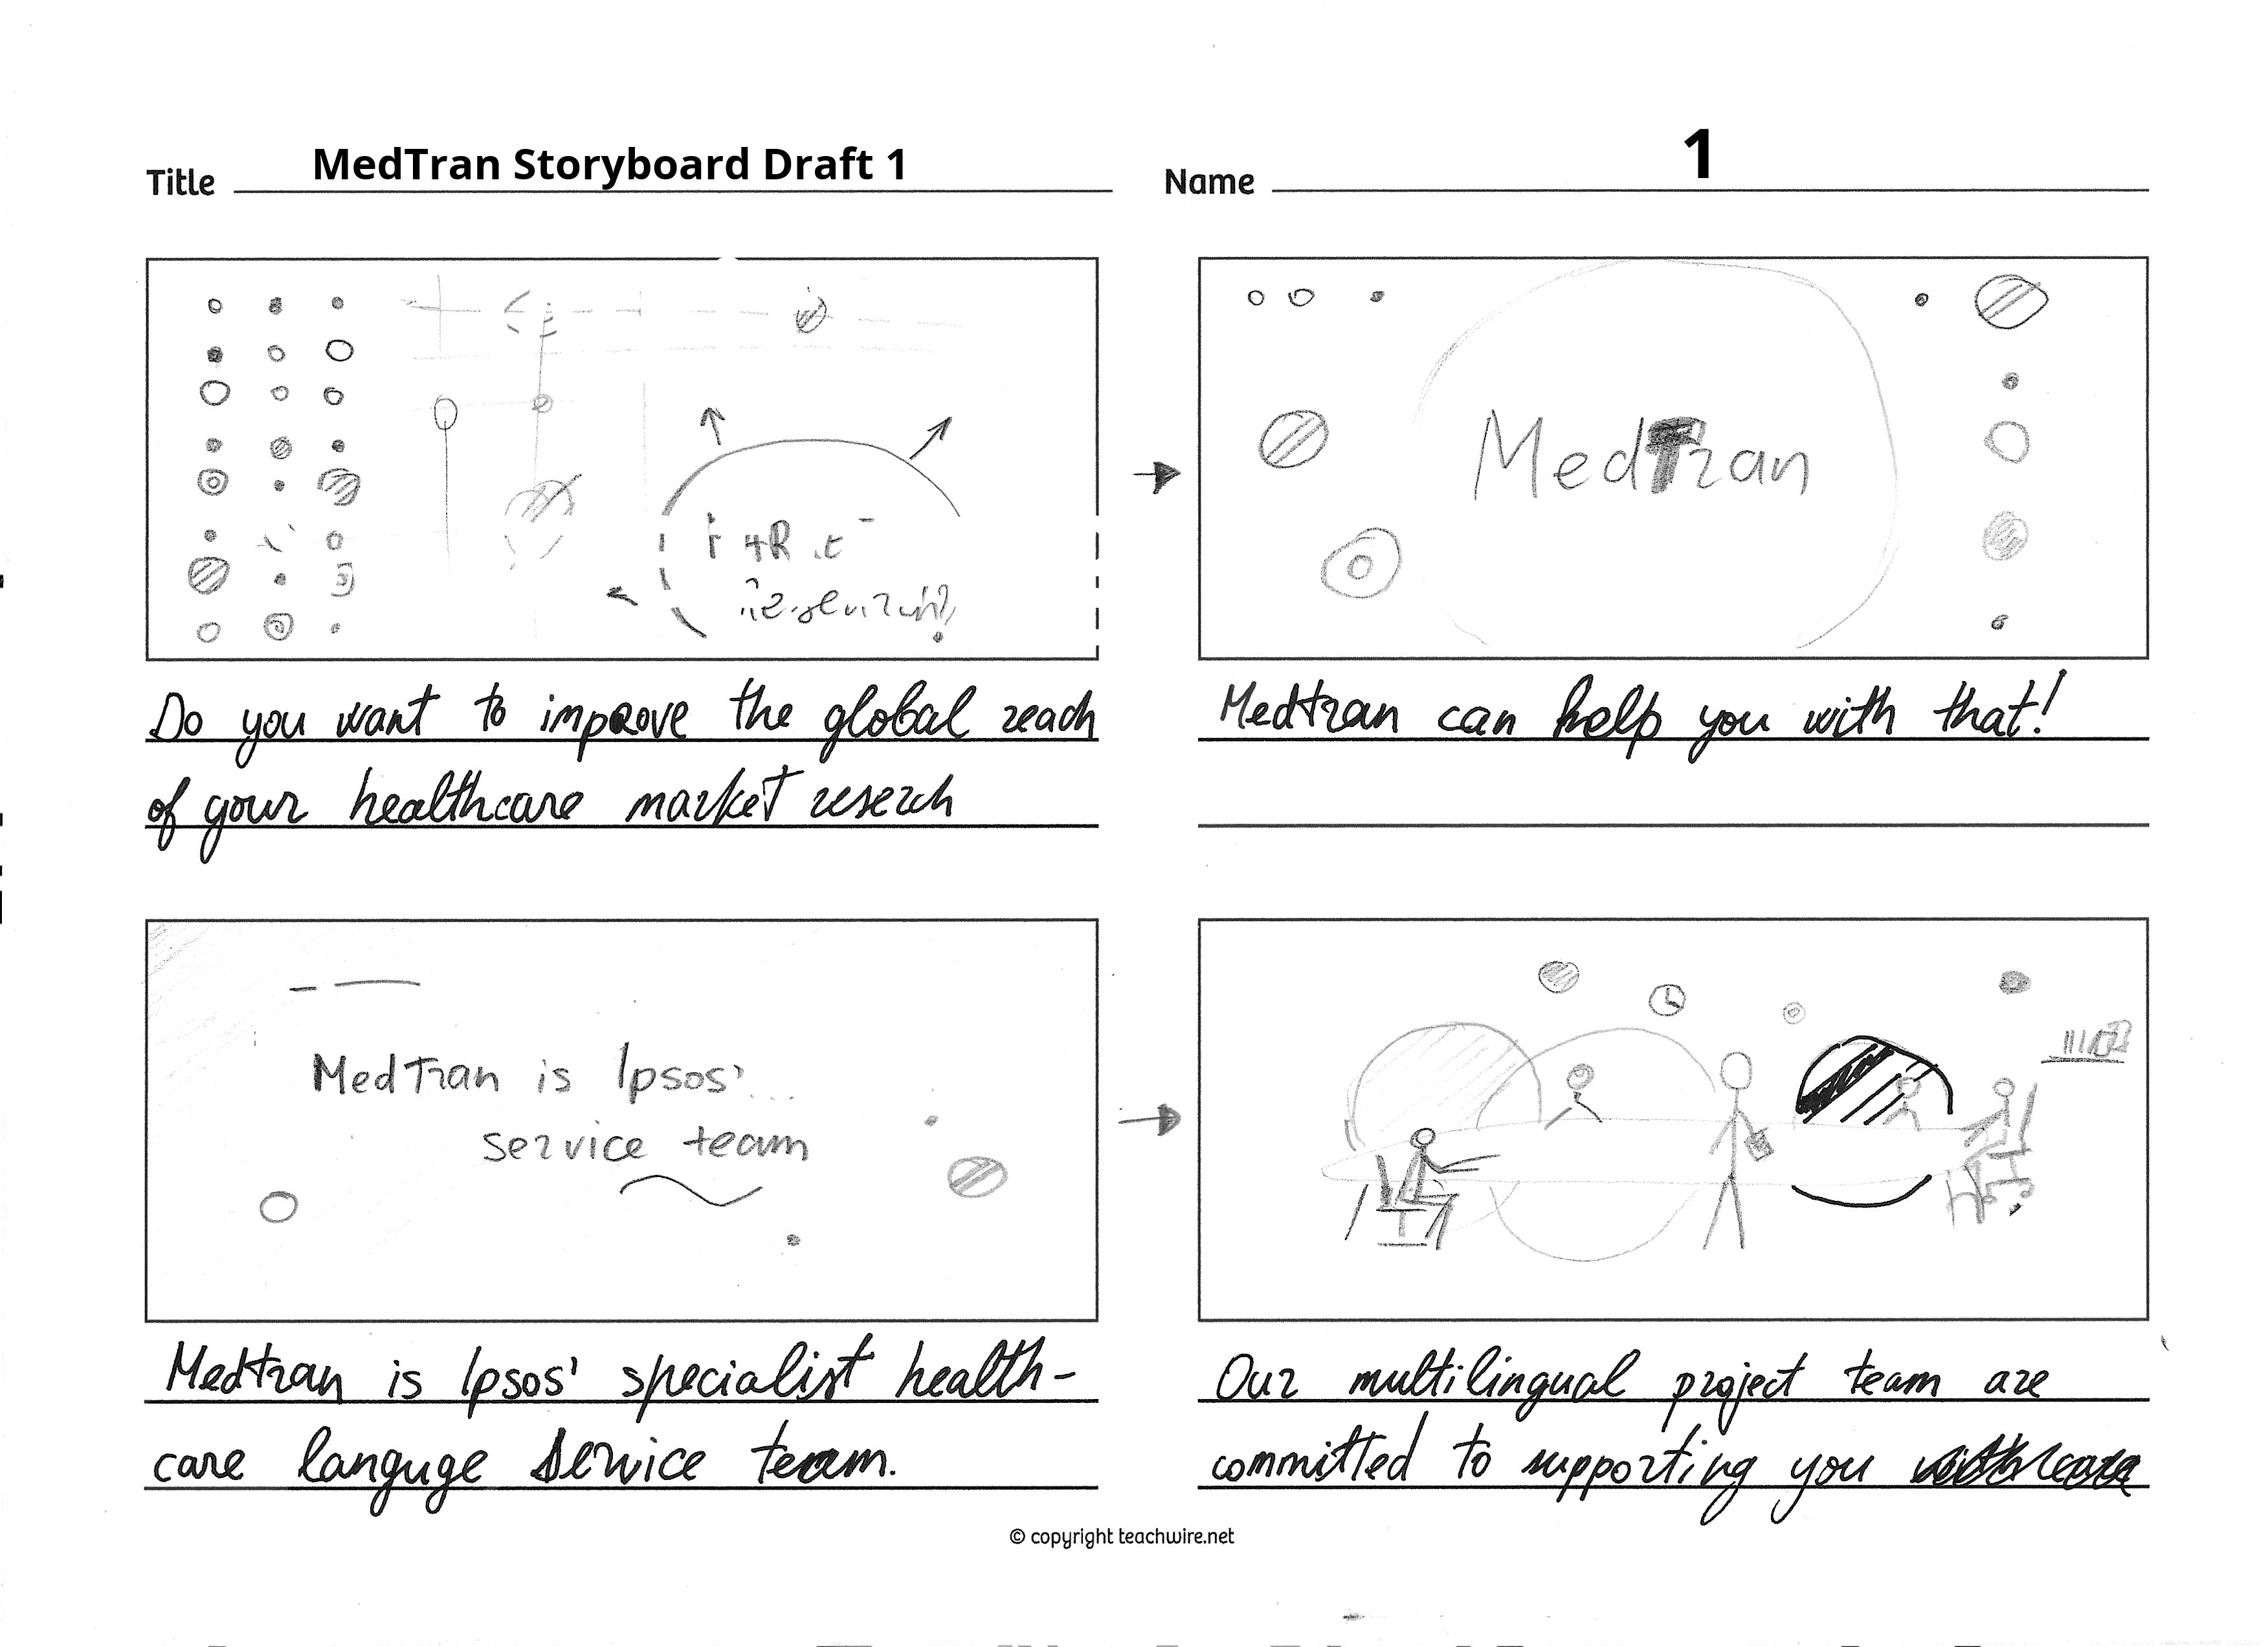 Title MedTran Storyboard Draft 1
Name 1
MedTran
Do you want to improve the global reach
of your healthcare market reserch
Medtran can help you with that!
MedTran is Ipsos'...
service team
Medtran is Ipsos' specialist health-
care languge service team.
Our multilingual project team are
committed to supporting you
© copyright teachwire.net